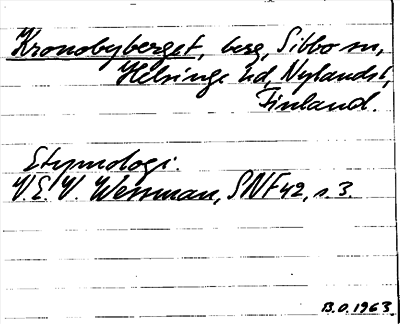 Kronobyberget, berg, Sibbo sn,
Helsinge hd, Nylands l,
Finland.
Etymologi.
V.E.V. Wessman, SNF 42, s. 3.
B.O. 1963